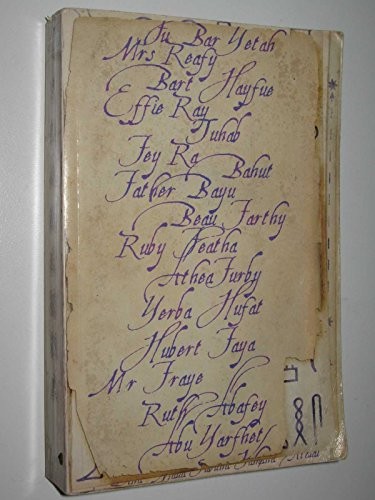 Fu Bar Yetah
Mrs Reafy
Bart Hayfue
Effie Ray
Tuhab
Fey Ra
Bahut
Father Bayu
Beau Farthy
Ruby Featha
Athea Furby
Yerba Hufat
Hubert Faya
Mr Fraye
Ruth Abafey
Abu Yarfhet